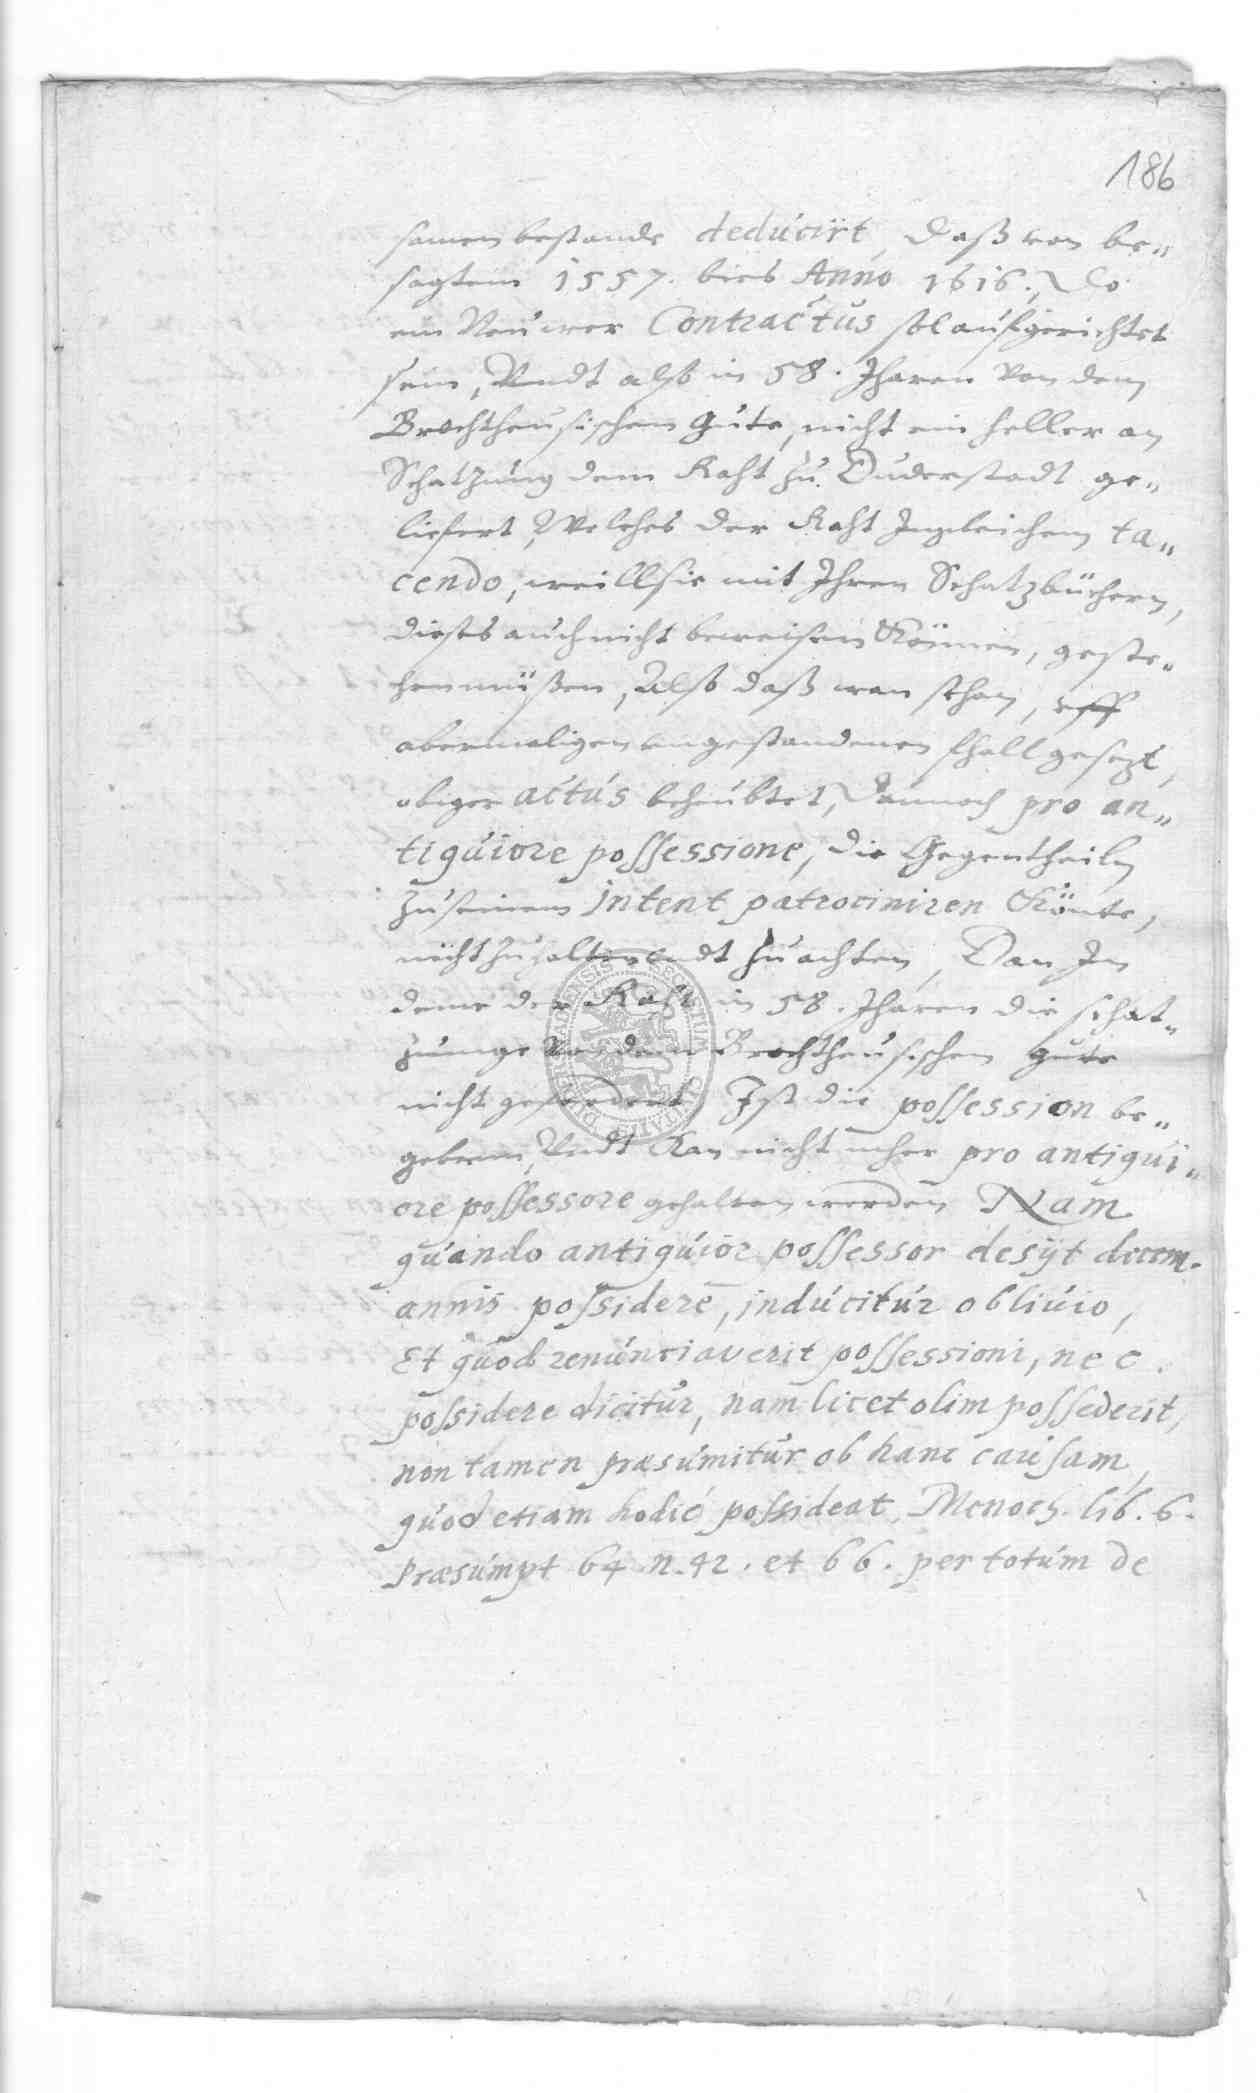 186
samen bestande deducirt, daß von be„
sagtem 1557. bies Anno 1616., do
ein Neuwer Contractus sol aufgerichtet
sein, Undt also in 58. Jharen von dem
Brochtheusischen gute, nicht ein heller an
Schatzung dem Raht zu Duderstadt ge„
liefert, Welches der Raht Ingleichem ta„
cendo, weill sie mit Ihren Schatzbüchern,
dieses auch nicht beweisen Können, geste„
hen müßen, Also daß wan schon, uff
abermaligen ungestandenen fhall gesezt,
obiger actus behaubtet, dannoch pro an„
tiquiore possessione, die Gegentheiln
zu seinem Intent patrociniren Könte,
nicht zuhalten undt zu achten, Dan In
deme der Raht in 58. Jharen die schat„
zunge von dem Brochtheusischen gute
nicht gefordert, Ist die possession be„
geben, Undt Kan nicht mher pro antiqui„
ore possessore gehalten werden Nam
quando antiquior possessor desÿt decem
annis possidere, inducitur oblivio,
Et quod renunciaverit possessioni, nec
possidere dicitur, nam licet olim possederit,
non tamen præsumitur ob hanc causam,
quod etiam hodie possideat, Menoch. lib. 6.
Præsumpt 64 n. 42. et 66. per totum de
SECRETUM